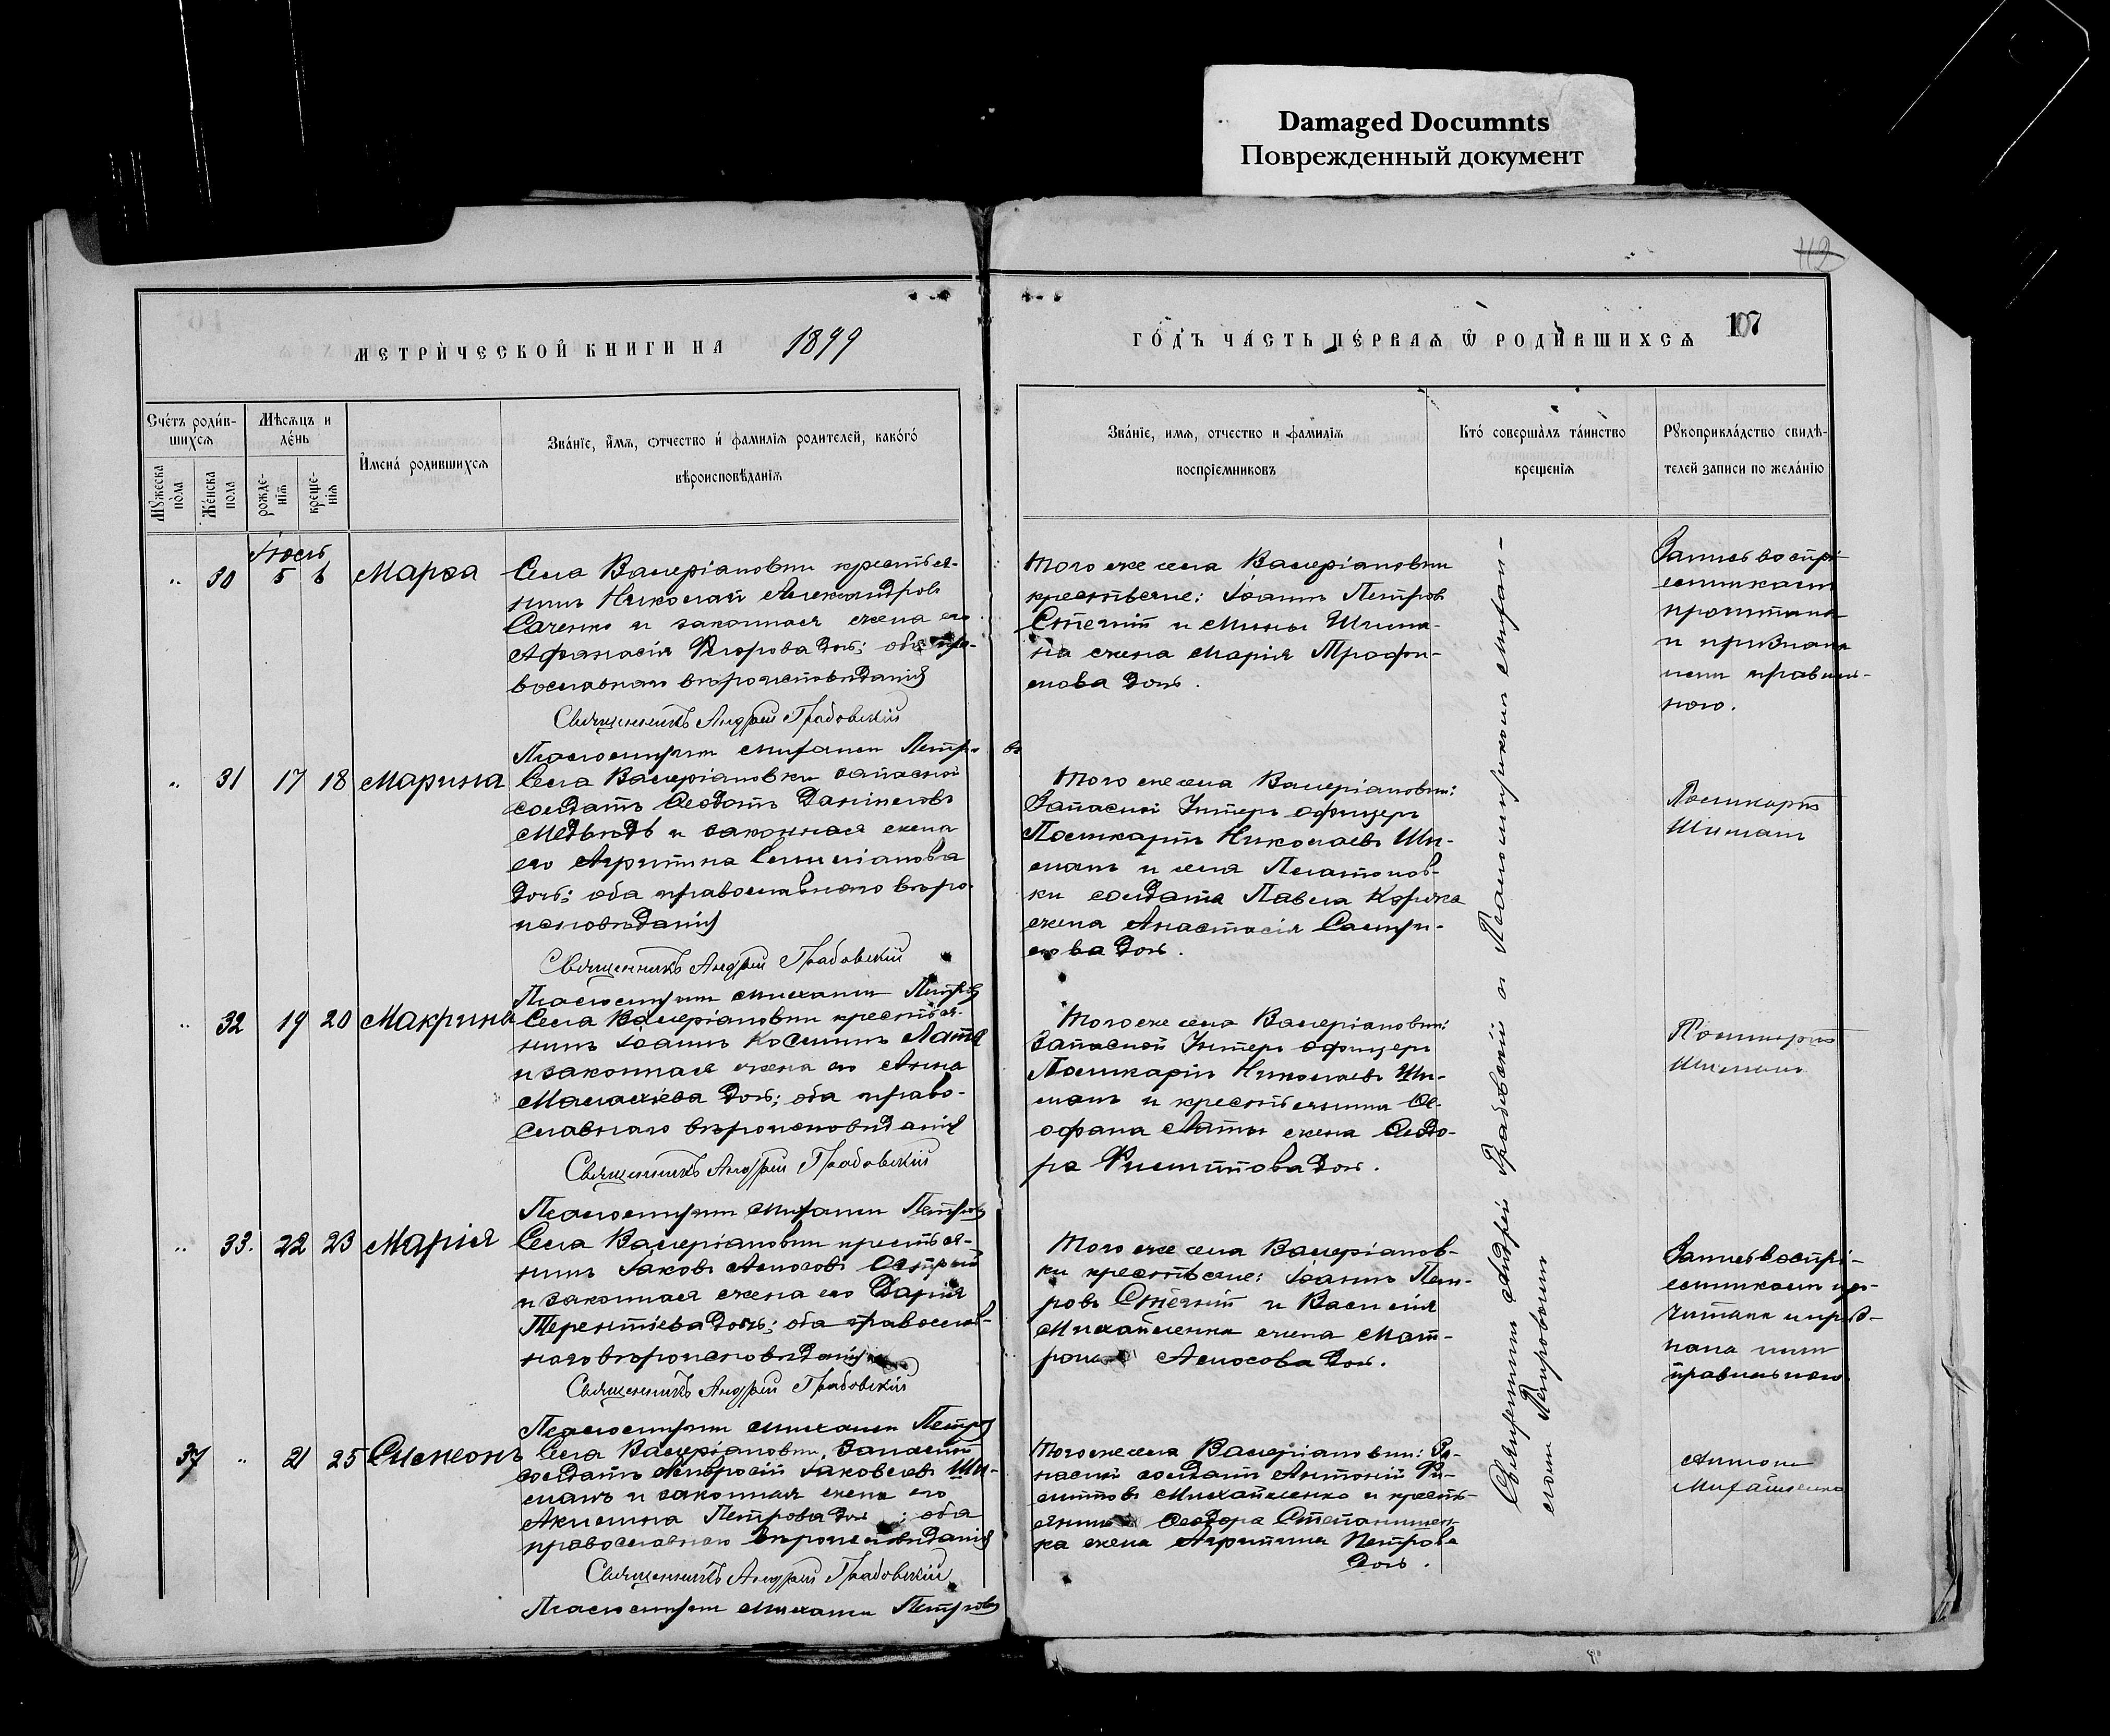 Damaged Documnts
Поврежденный документ
112
107
МЕТРИЧЕСКОЙ КНИГИ НА 1899
ГОДЪ ЧАСТЬ ПЕРВАЯ Ѿ РОДИВШИХСЯ
Счетъ родив-
шихся
Мужеска
пола
Женска
пола
Мѣсяцъ и
день
рожде-
нія
креще-
нія
Имена родившихся
Званіе, имя, отчество и фамилія родителей, какого
вѣроисповѣданія
Званіе, имя, отчество и фамилія
воспріемниковъ
Кто совершалъ таинство
крещенія
Рукоприкладство свидѣ-
телей записи по желанію
" 30 5 6 Марѳа
Села Валеріановки крестья-
нинъ Николай Александровъ
Саченко и законная жена его
Афанасія Егорова дочь; оба пра-
вославнаго вѣроисповѣданія
Священникъ Андрей Грабовскій
Псаломщикъ Михаилъ Петровъ
Того же села Валеріановки
крестьяне: Іоаннъ Петровъ
и Мины Шима-
на жена Марія Трофи-
мова дочь.
Запись воспрі-
емникамъ
прочитана
и признана
ими правиль-
ною.
" 31 17 18 Марина
Села Валеріановки запасной
солдатъ Ѳеодотъ Даніиловъ
Медвѣдь и законная жена
его Агрипина Емиліанова
дочь; оба православнаго вѣро-
исповѣданія
Священникъ Андрей Грабовскій
Псаломщикъ Михаилъ Петровъ
Того же села Валеріановки:
Запасной Унтеръ офицеръ
Поликарпъ Николаевъ Ши-
манъ и села Платонов-
ки солдата Павла
жена Анастасія
дочь.
Поликарпъ
Шиманъ
" 32 19 20 Макрина
Села Валеріановки крестья-
нинъ Іоаннъ Косминъ Лата
и законная жена его Анна
Малахіева дочь; оба право-
славнаго вѣроисповѣданія
Священникъ Андрей Грабовскій
Псаломщикъ Михаилъ Петровъ
Того же села Валеріановки:
Запасной Унтеръ офицеръ
Поликарпъ Николаевъ Ши-
манъ и крестьянина Ѳе-
офана Латы жена Ѳеодо-
ра Филиппова дочь.
Поликарпъ
Шиманъ
" 33. 22 23 Марія
Села Валеріановки крестья-
нинъ Іаковъ Амосовъ
и законная жена его Дарія
Терентіева дочь; оба православ-
наго вѣроисповѣданія
Священникъ Андрей Грабовскій
Псаломщикъ Михаилъ Петровъ
Того же села Валеріанов-
ки крестьяне: Іоаннъ Пет-
ровъ и Василія
Михайленка жена Мат-
рона Амосова дочь.
Запись воспрі-
емникамъ про-
читана и приз-
нана ими
правильною.
37 " 21 25 Симеонъ
Села Валеріановки, Запасной
солдатъ Амвросій Іаковлевъ Ши-
манъ и законная жена его
Акилина Петрова дочь; оба
православнаго вѣроисповѣданія
Священникъ Андрей Грабовскій
Псаломщикъ Михаилъ Петровъ
Того же села Валеріановки: За-
пасной солдатъ Антоній Фи-
липповъ Михайленко и кресть-
янина Ѳеодора
жена Агрипина Петрова
дочь.
Антонъ
Михайленко
Священникъ Андрей Грабовскій и Псаломщикомъ Михаи-
ломъ Петровымъ